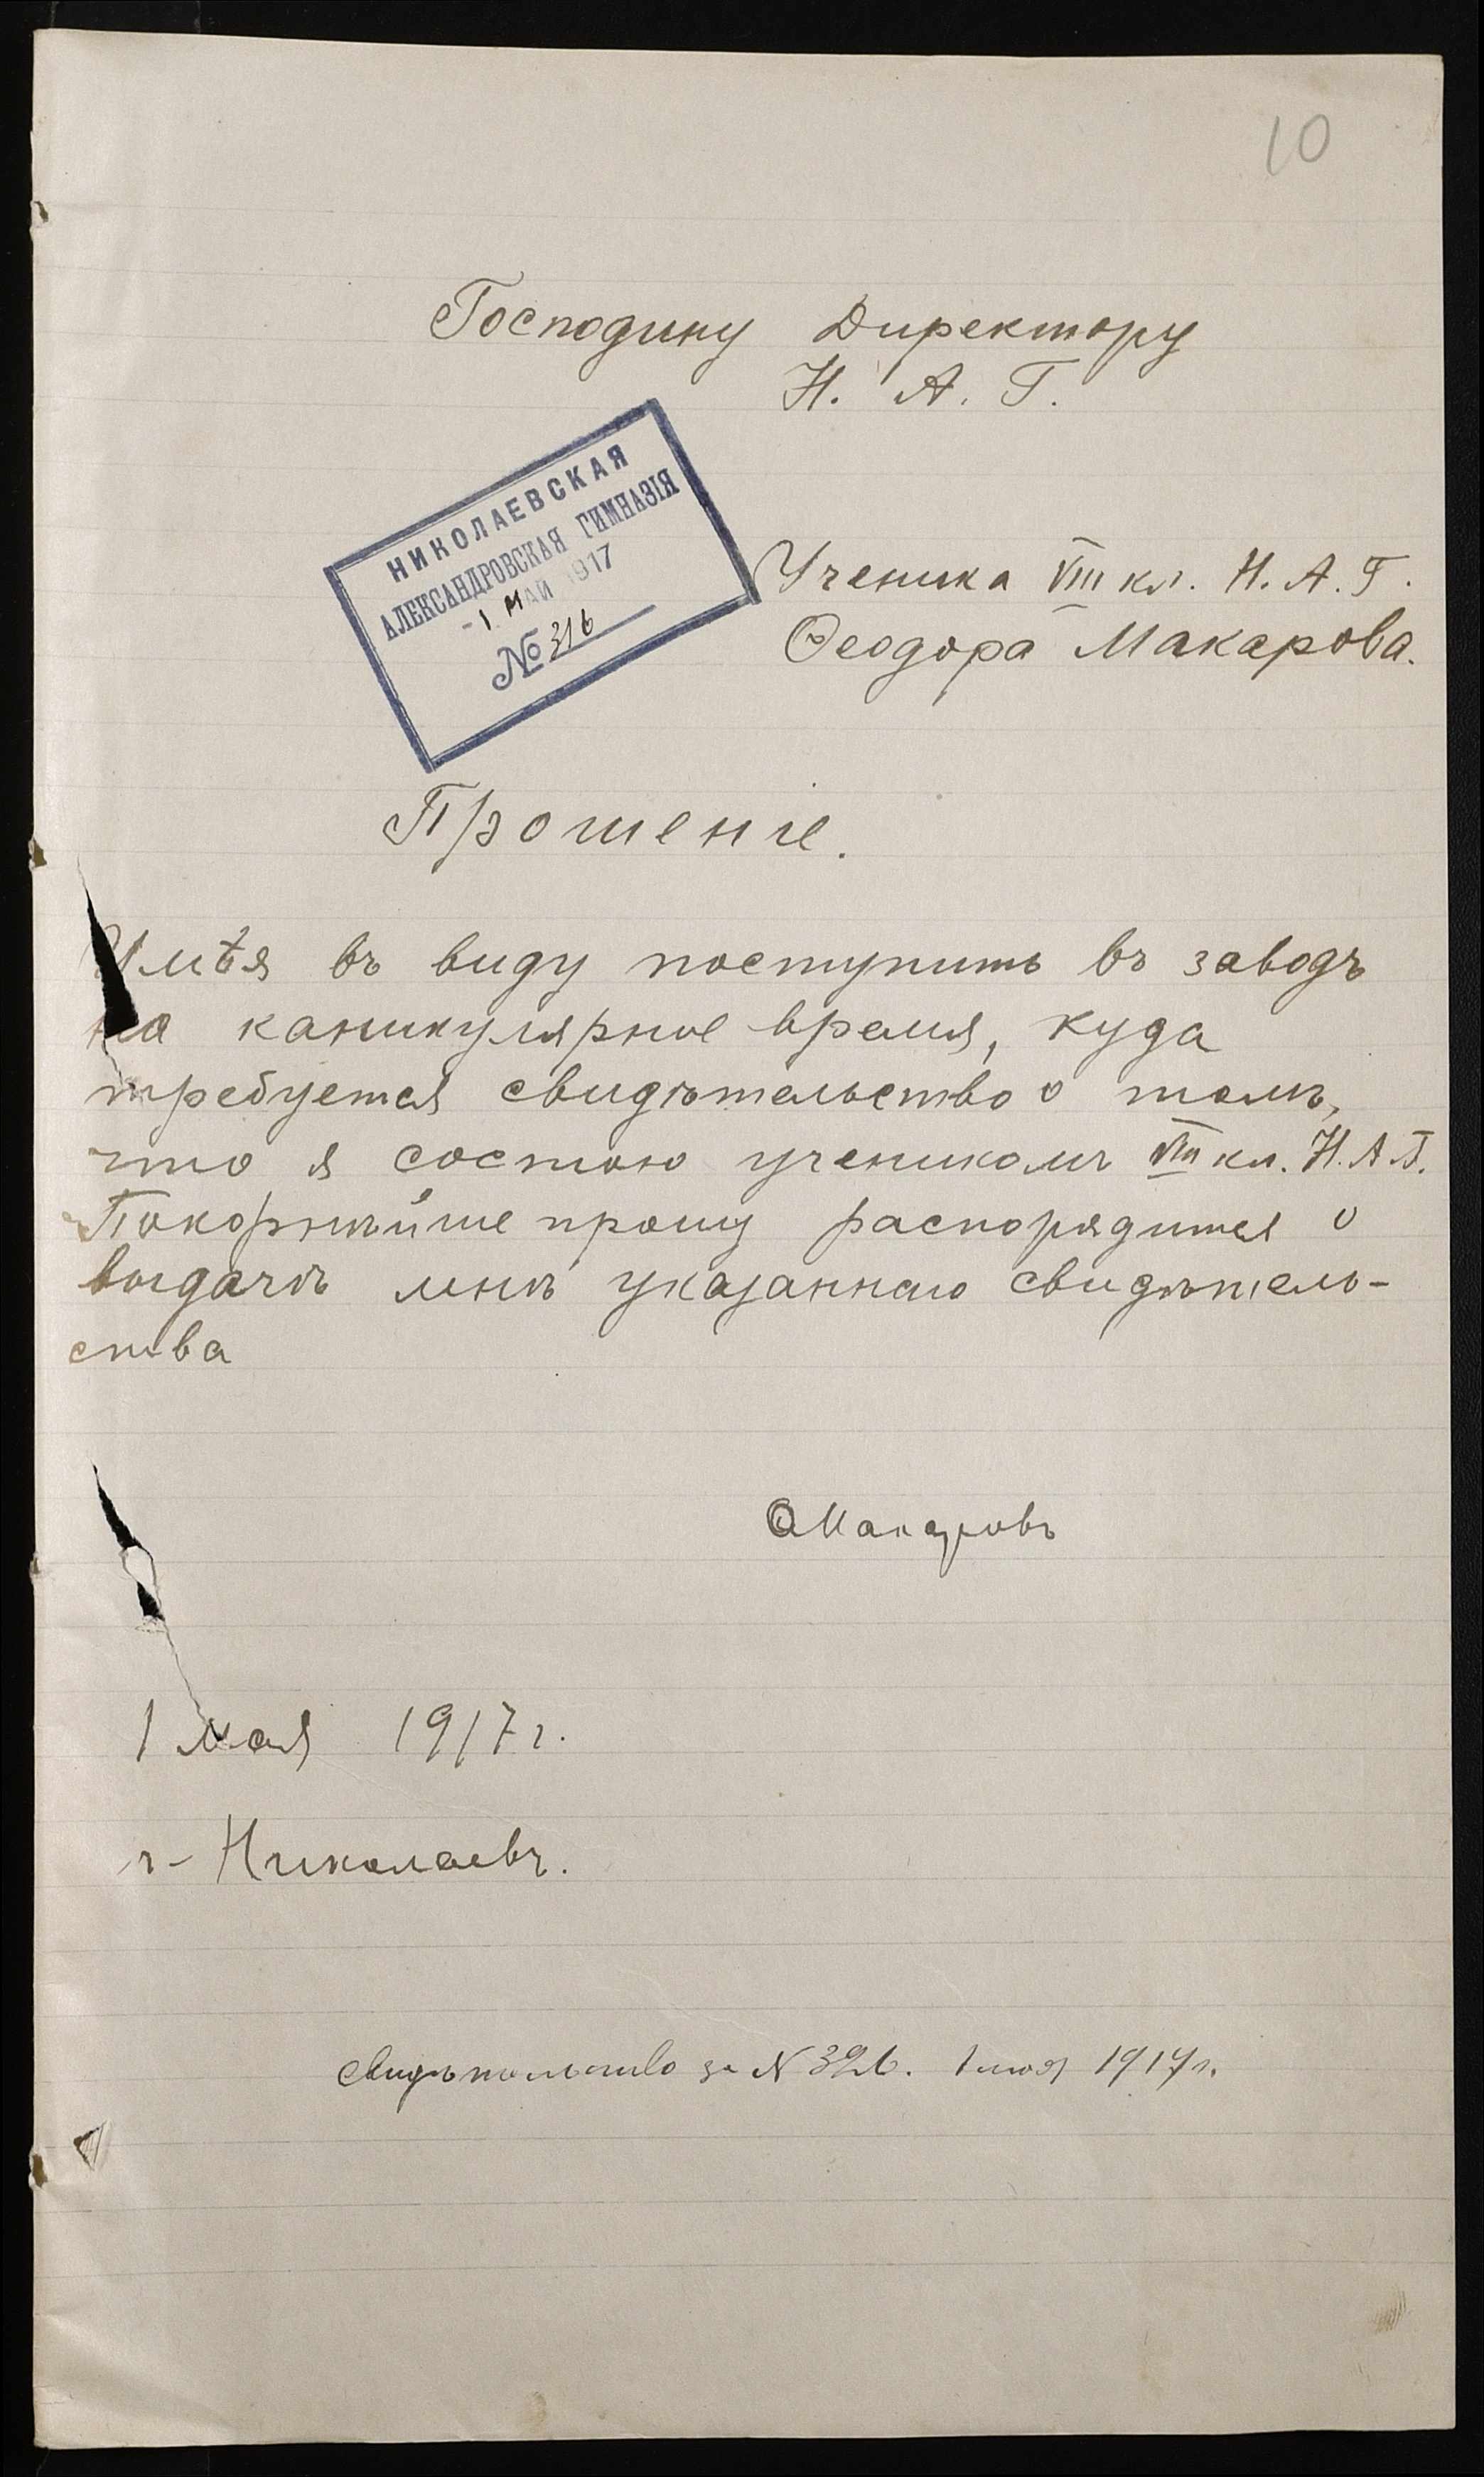 10
Господину Директору
Н. А. Г.
НИКОЛАЕВСКАЯ
АЛЕКСАНДРОВСКАЯ ГИМНАЗІЯ
-1 МАЙ 1917
№ 316
Ученика VIII кл. Н. А. Г.
Ѳеодора Макарова.
Прошеніе.
Имѣя въ виду поступить въ заводъ
на каникулярное время, куда
требуется свидѣтельство о томъ,
что я состою ученикомъ VIII кл. Н. А. Г.
Покорнѣйше прошу распорядится о
выдачѣ мнѣ указаннаго свидѣтель-
ства
ѲМакаровъ
1 мая 1917 г.
г- Николаевъ.
Свидѣтельство за N 326. 1 мая 1917 г.